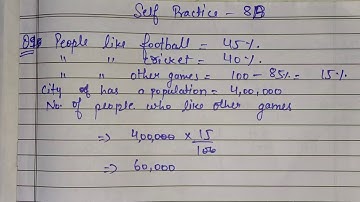 Self Practice - 8B
Q9. People like football = 45%.
" " cricket = 40%.
" " other games = 100 - 85% = 15%.
City of has a population = 4,00,000
No. of people who like other games
⇒ 4,00,000 × 15/100
⇒ 60,000